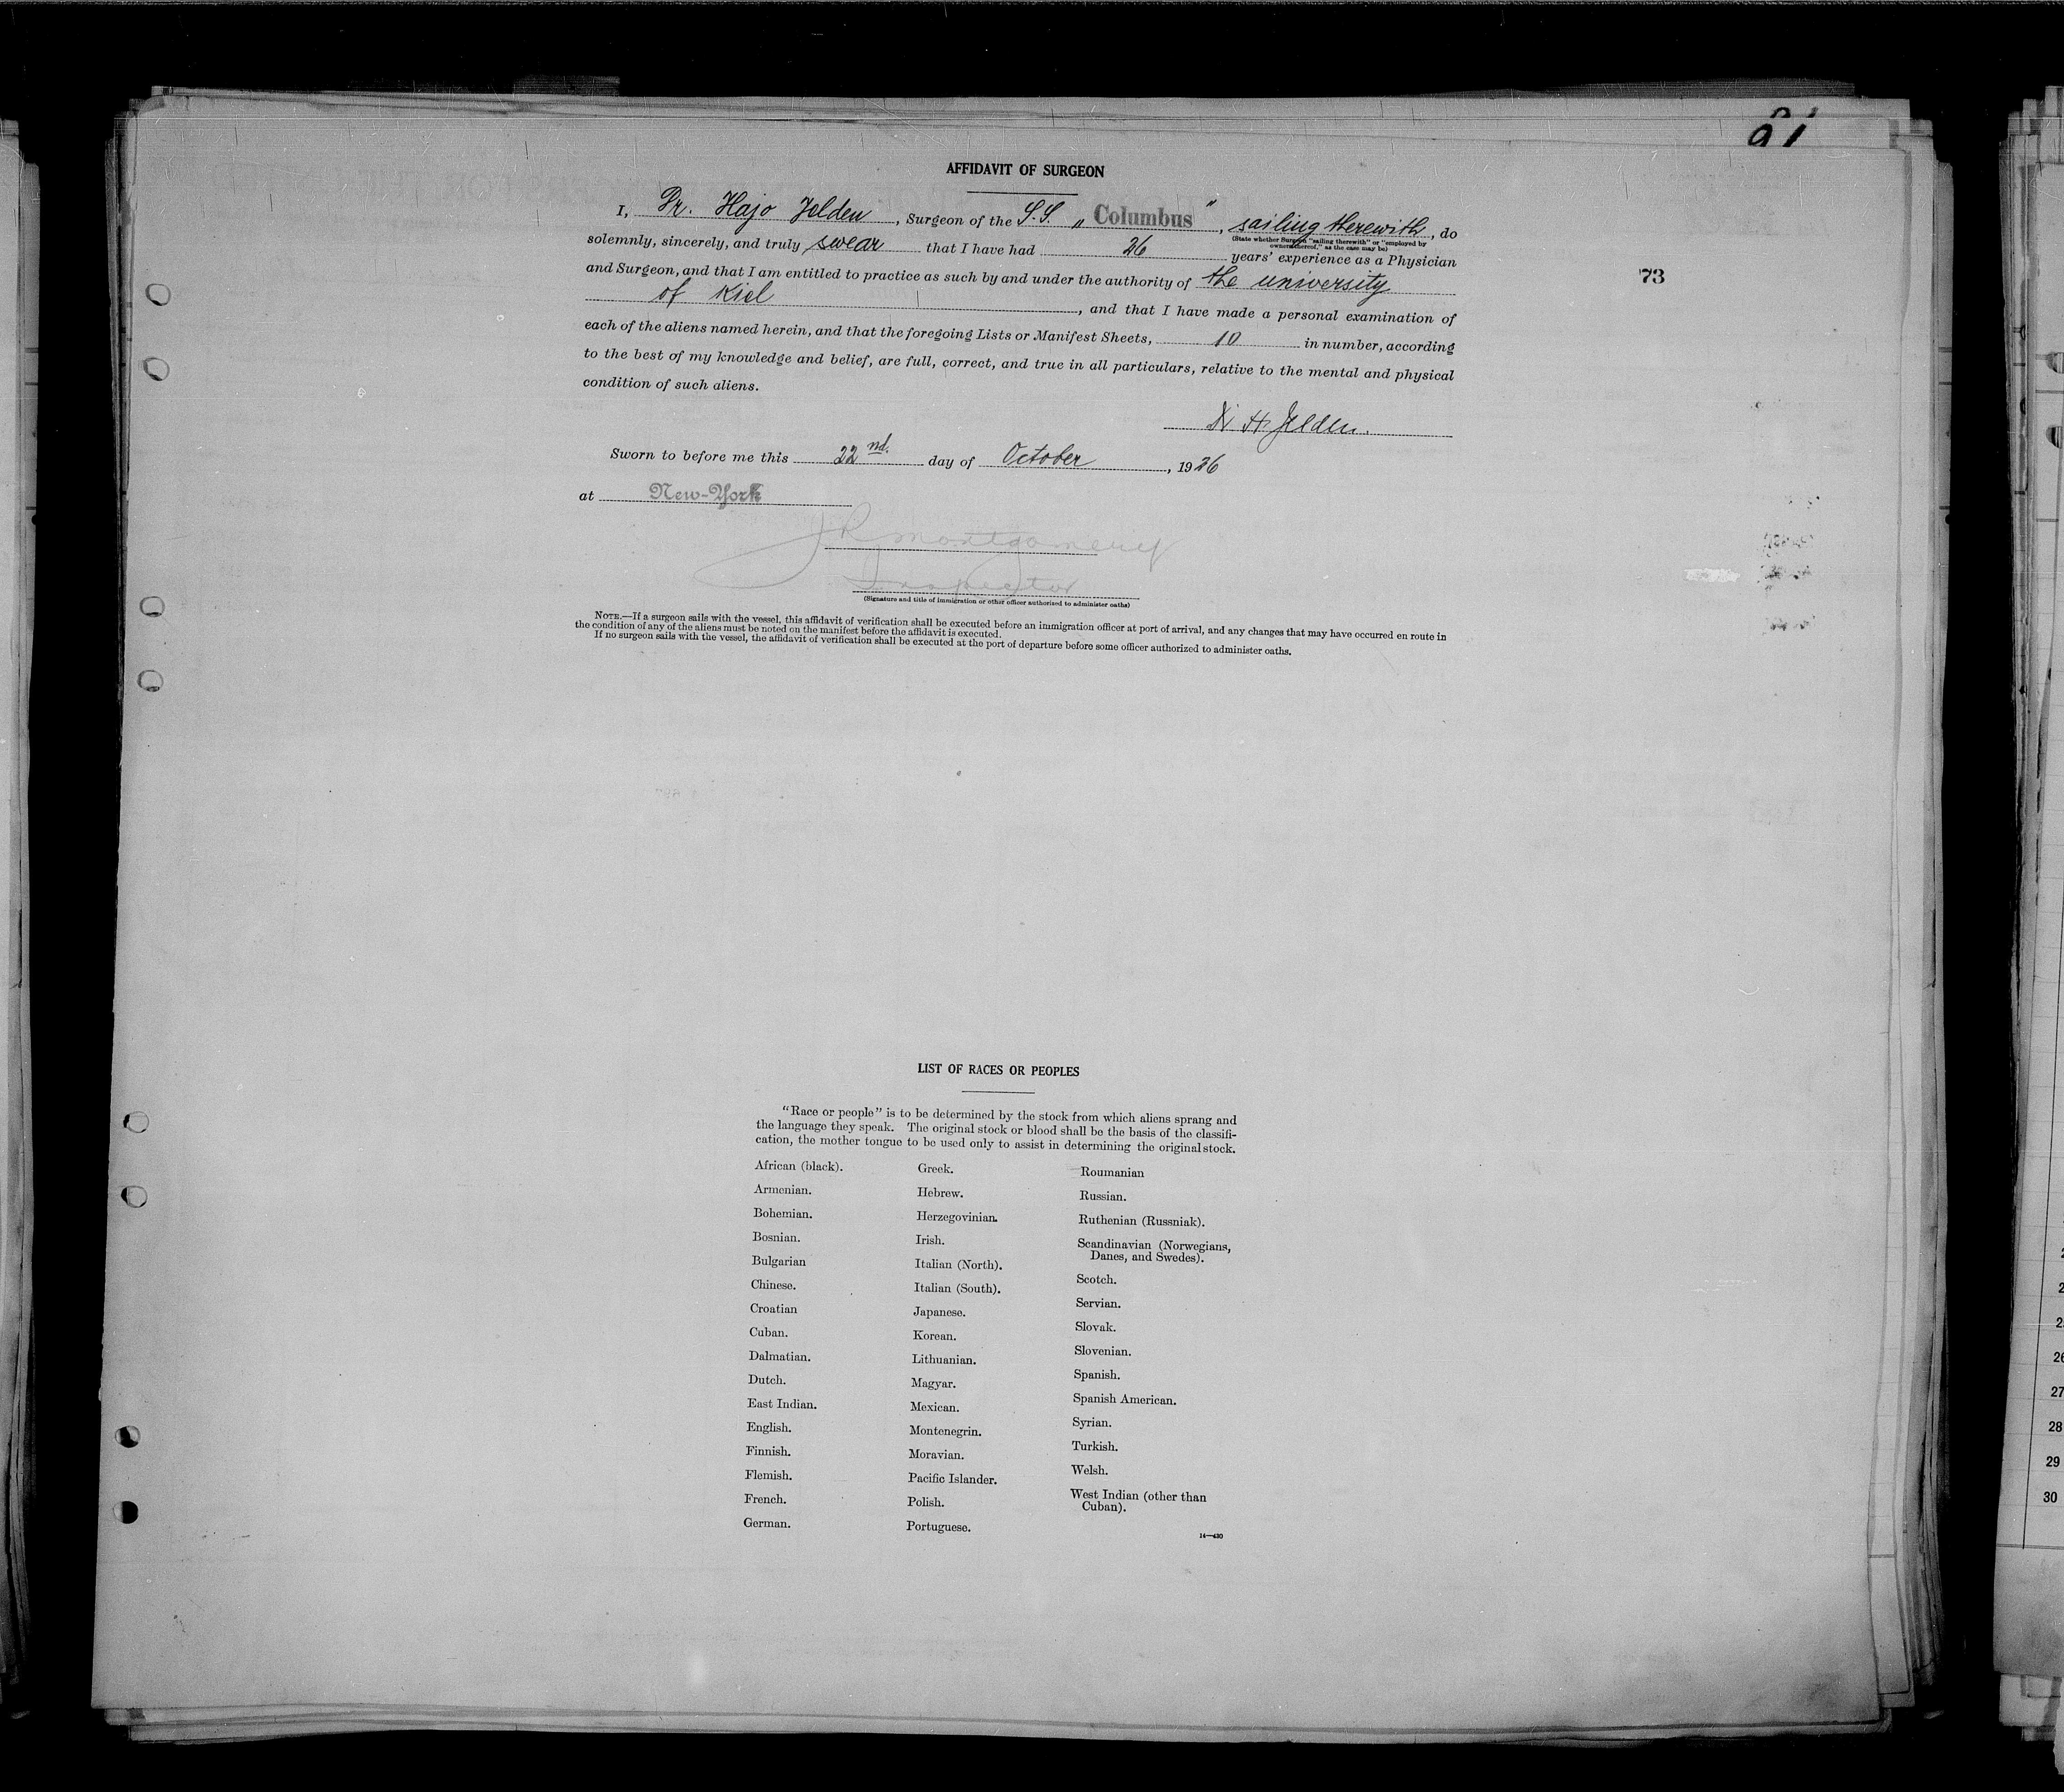 91
AFFIDAVIT OF SURGEON
I, Dr. Hajo Jelden, Surgeon of the S.S. „Columbus", sailing therewith, do
(State whether Surgeon "sailing therewith" or "employed by
owners thereof," as the case may be)
solemnly, sincerely, and truly swear that I have had 26 years' experience as a Physician
and Surgeon, and that I am entitled to practice as such by and under the authority of the university
73
of Kiel, and that I have made a personal examination of
each of the aliens named herein, and that the foregoing Lists or Manifest Sheets, 10 in number, according
to the best of my knowledge and belief, are full, correct, and true in all particulars, relative to the mental and physical
condition of such aliens.
Dr H. Jelden.
Sworn to before me this 22nd. day of October, 1926
at New-York
J R Montgomery
Inspector
(Signature and title of immigration or other officer authorized to administer oaths)
NOTE.—If a surgeon sails with the vessel, this affidavit of verification shall be executed before an immigration officer at port of arrival, and any changes that may have occurred en route in
the condition of any of the aliens must be noted on the manifest before the affidavit is executed.
If no surgeon sails with the vessel, the affidavit of verification shall be executed at the port of departure before some officer authorized to administer oaths.
LIST OF RACES OR PEOPLES
"Race or people" is to be determined by the stock from which aliens sprang and
the language they speak. The original stock or blood shall be the basis of the classifi-
cation, the mother tongue to be used only to assist in determining the original stock.
African (black).
Armenian.
Bohemian.
Bosnian.
Bulgarian
Chinese.
Croatian
Cuban.
Dalmatian.
Dutch.
East Indian.
English.
Finnish.
Flemish.
French.
German.
Greek.
Hebrew.
Herzegovinian.
Irish.
Italian (North).
Italian (South).
Japanese.
Korean.
Lithuanian.
Magyar.
Mexican.
Montenegrin.
Moravian.
Pacific Islander.
Polish.
Portuguese.
Roumanian
Russian.
Ruthenian (Russniak).
Scandinavian (Norwegians,
Danes, and Swedes).
Scotch.
Servian.
Slovak.
Slovenian.
Spanish.
Spanish American.
Syrian.
Turkish.
Welsh.
West Indian (other than
Cuban).
14—430
26
27
28
29
30